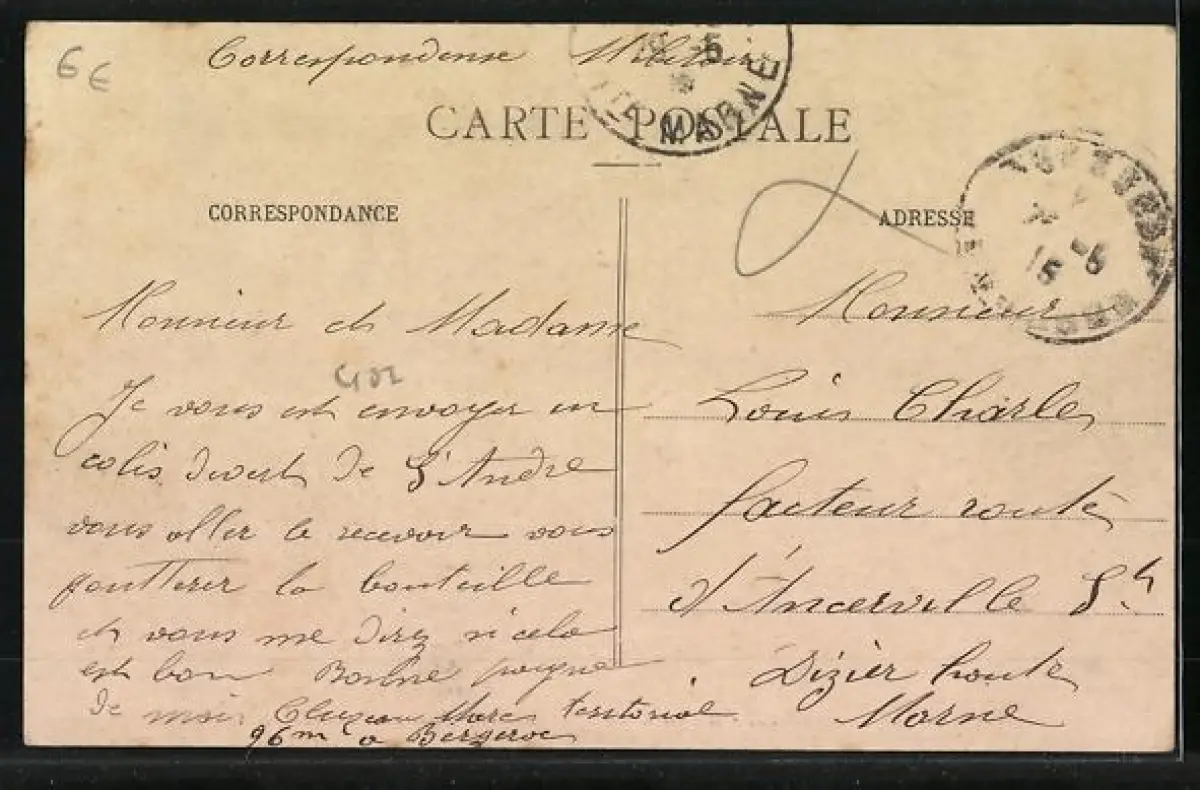 6 €
Correspondense Militaire
5
HTE MARNE
CARTE POSTALE
CORRESPONDANCE
ADRESSE
Monsieur et Madame
Je vous est envoyer un
colis divert de St André
vous aller le recevoir vous
goutterer la bouteille
et vous me direz si cela
est bon Bonne poigne
de main Cluzeau Marc territorial
96me a Bergerac
Monsieur
Louis Charles
facteur route
d'Ancerville St
Dizier haute
Marne